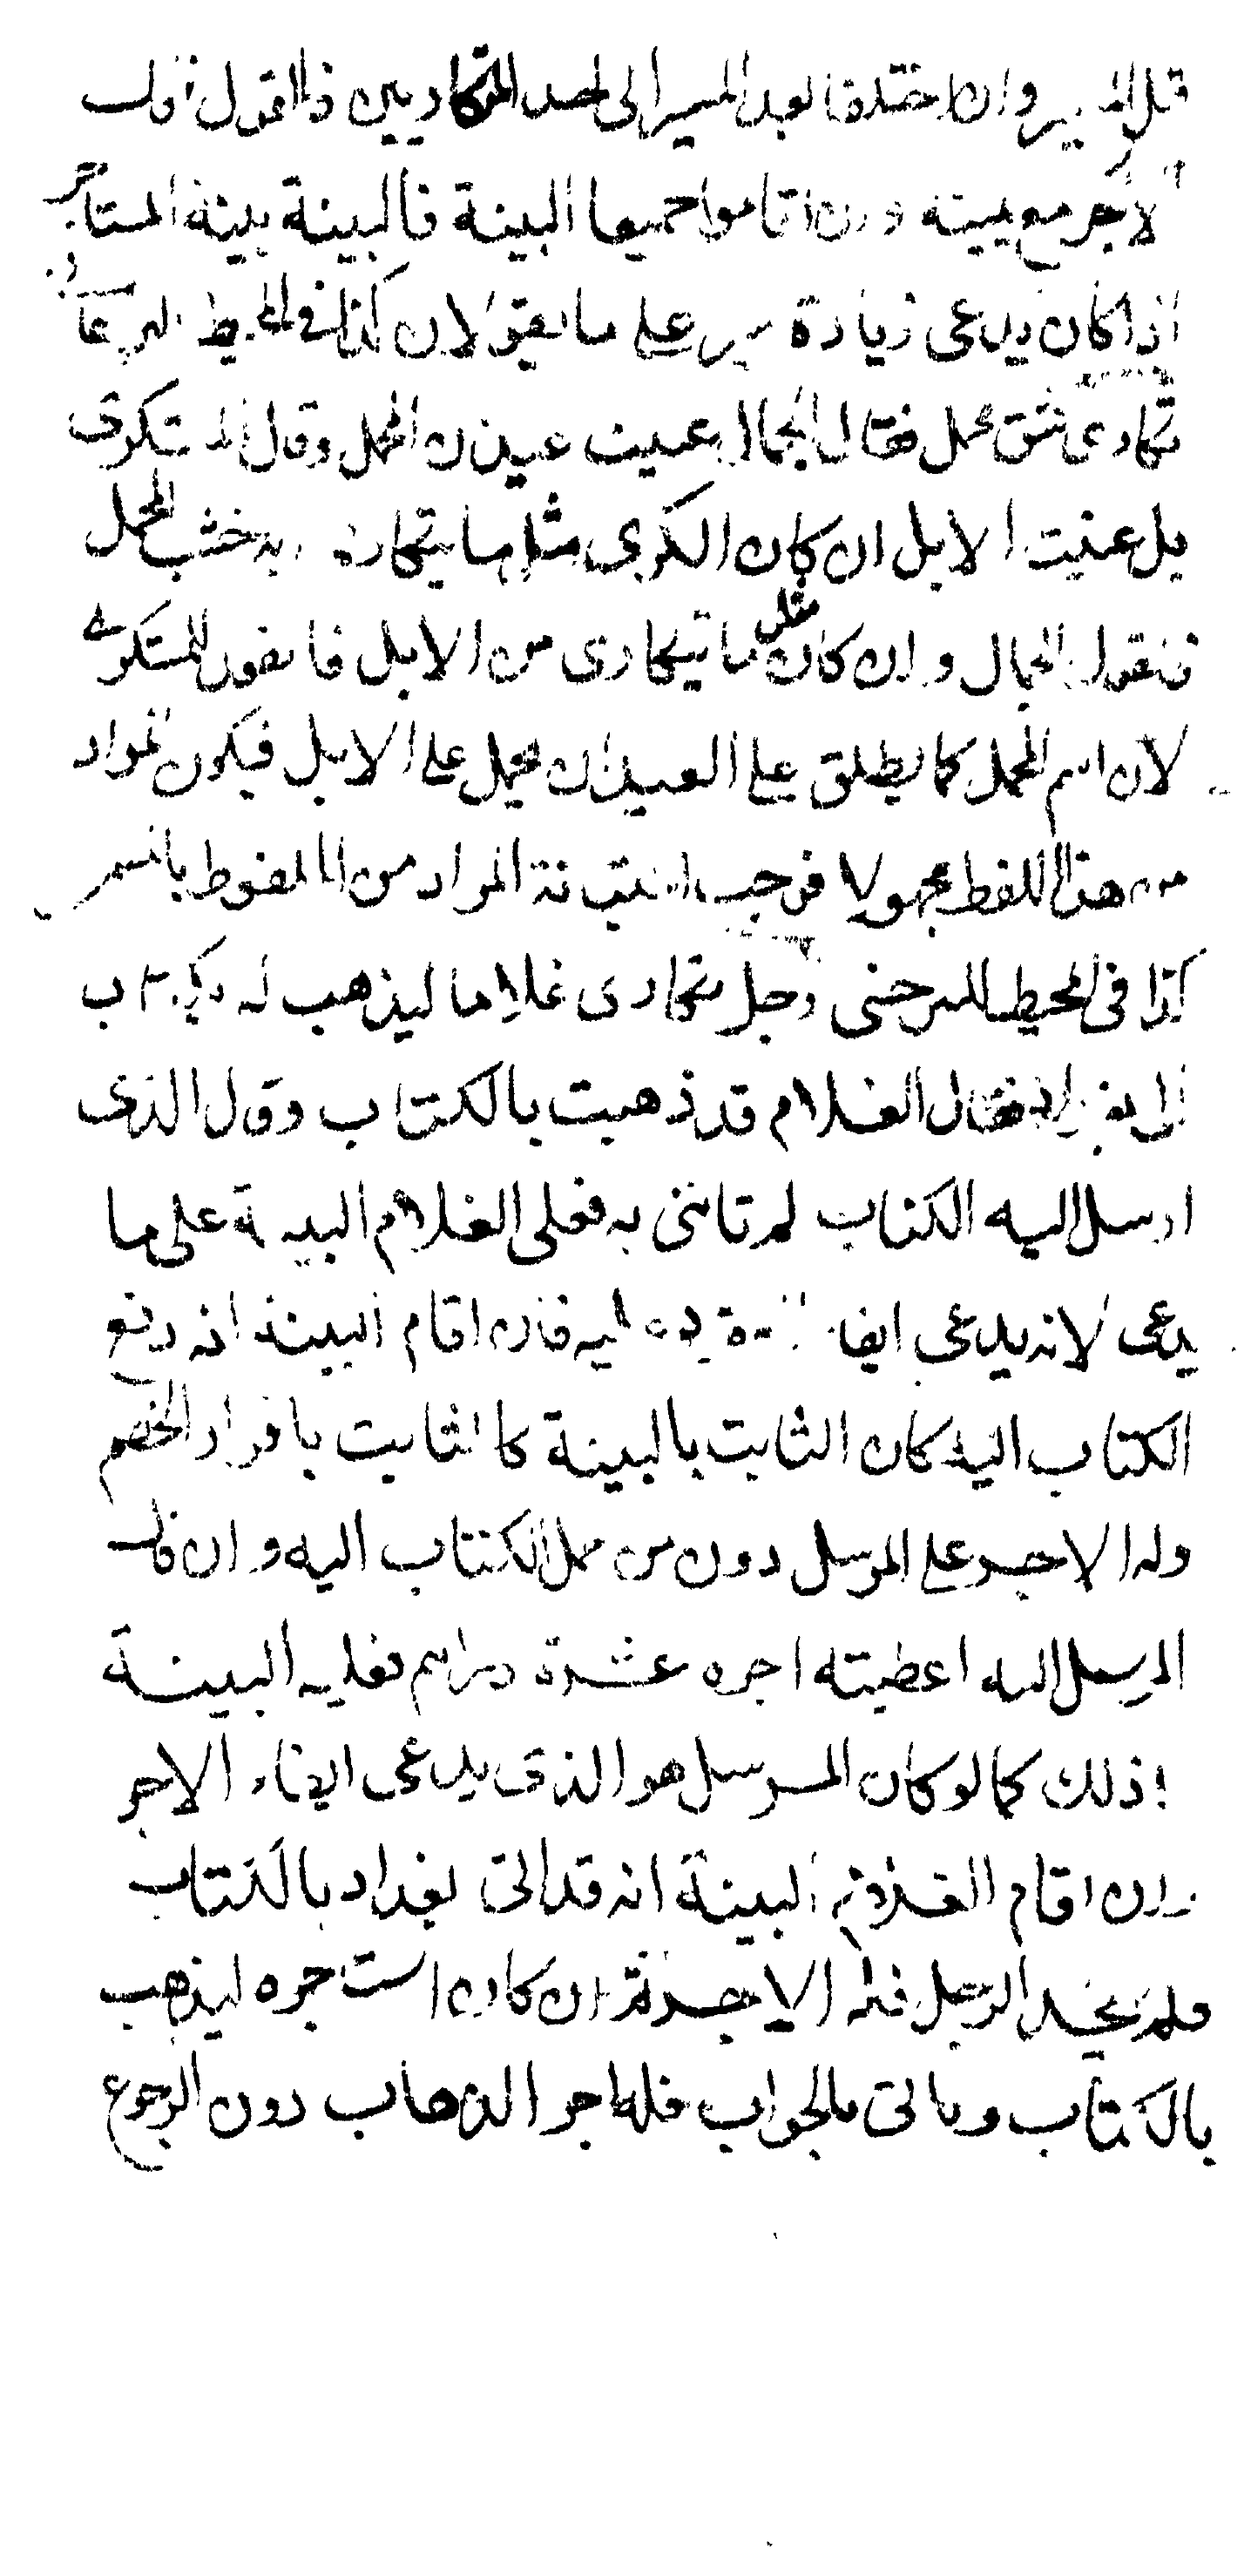 قبل المسير وان اختلفا بعد المسير الى احد المتكاريين فالقول قول
الآجر مع يمينه وان اقاموا جميعا البينة فالبينة بينة المستاجر
اذا كان يدعى زيادة سير على ما يقولان كذا فى المحيط
تكارى شق محمل فقال الجمال عنيت عيدان المحمل وقال المستكرى
بل عنيت الابل ان كان الكرى مثل ما يتكارى به خشب المحمل
فالقول الجمال وان كان مثل ما يتكارى من الابل فالقول للمستكرى
لان اسم المحمل كما يطلق على العيدان يحمل على الابل فيكون المراد
من هذا اللفظ مجهولا فوجب استبانة المراد من الملفوظ بالسمر
كذا فى المحيط للسرخسى رجل تكارى غلاما ليذهب له بكتاب
الى بغداد فقال الغلام قد ذهبت بالكتاب وقال الذى
ارسل اليه الكتاب لم تاتنى به فعلى الغلام البينة على ما
يدعى لانه يدعى ايفاء عليه فان اقام البينة انه دفع
الكتاب اليه كان الثابت بالبينة كالثابت باقرار الخصم
وله الاجر على المرسل دون من حمل الكتاب اليه وان قال
المرسل اليه اعطيته اجره عشرة دراهم فعليه البينة
ذلك كما لو كان المرسل هو الذى يدعى ايفاء الاجر
وان اقام الغلام البينة انه قد اتى بغداد بالكتاب
فلم يجد الرجل فله الاجر ثم ان كان استاجره ليذهب
بالكتاب وياتى بالجواب فله اجر الذهاب دون الرجوع